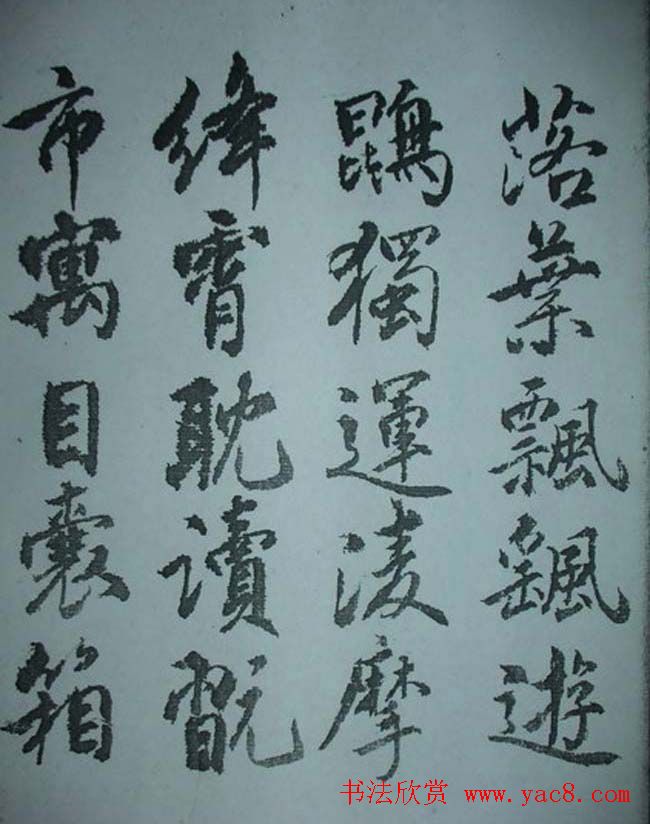 落葉飄颻遊
鵾獨運淩摩
絳霄耽讀翫
市寓目囊箱
书法欣赏 www.yac8.com